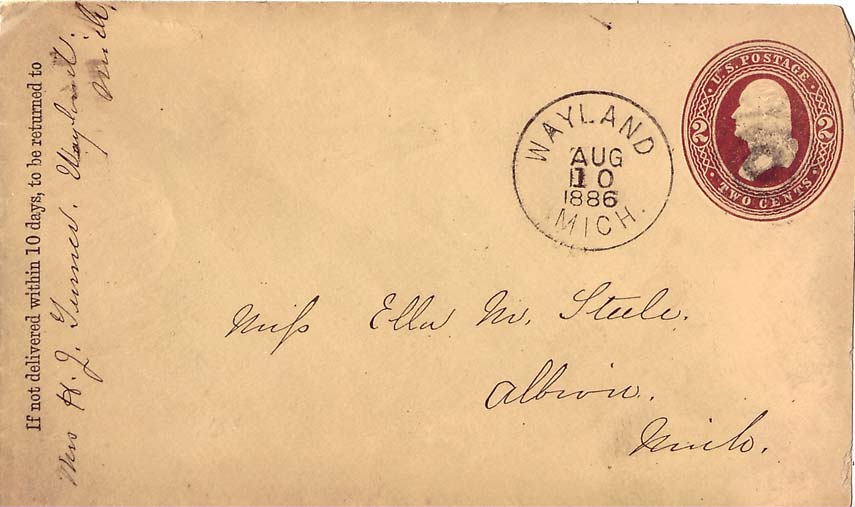 If not delivered within 10 days, to be returned to
Mrs H. J. Turner. Wayland.
Mich.
WAYLAND
AUG
10
1886
MICH.
U.S. POSTAGE
2 2
TWO CENTS
Miss Ella M. Steele.
Albion.
Mich.